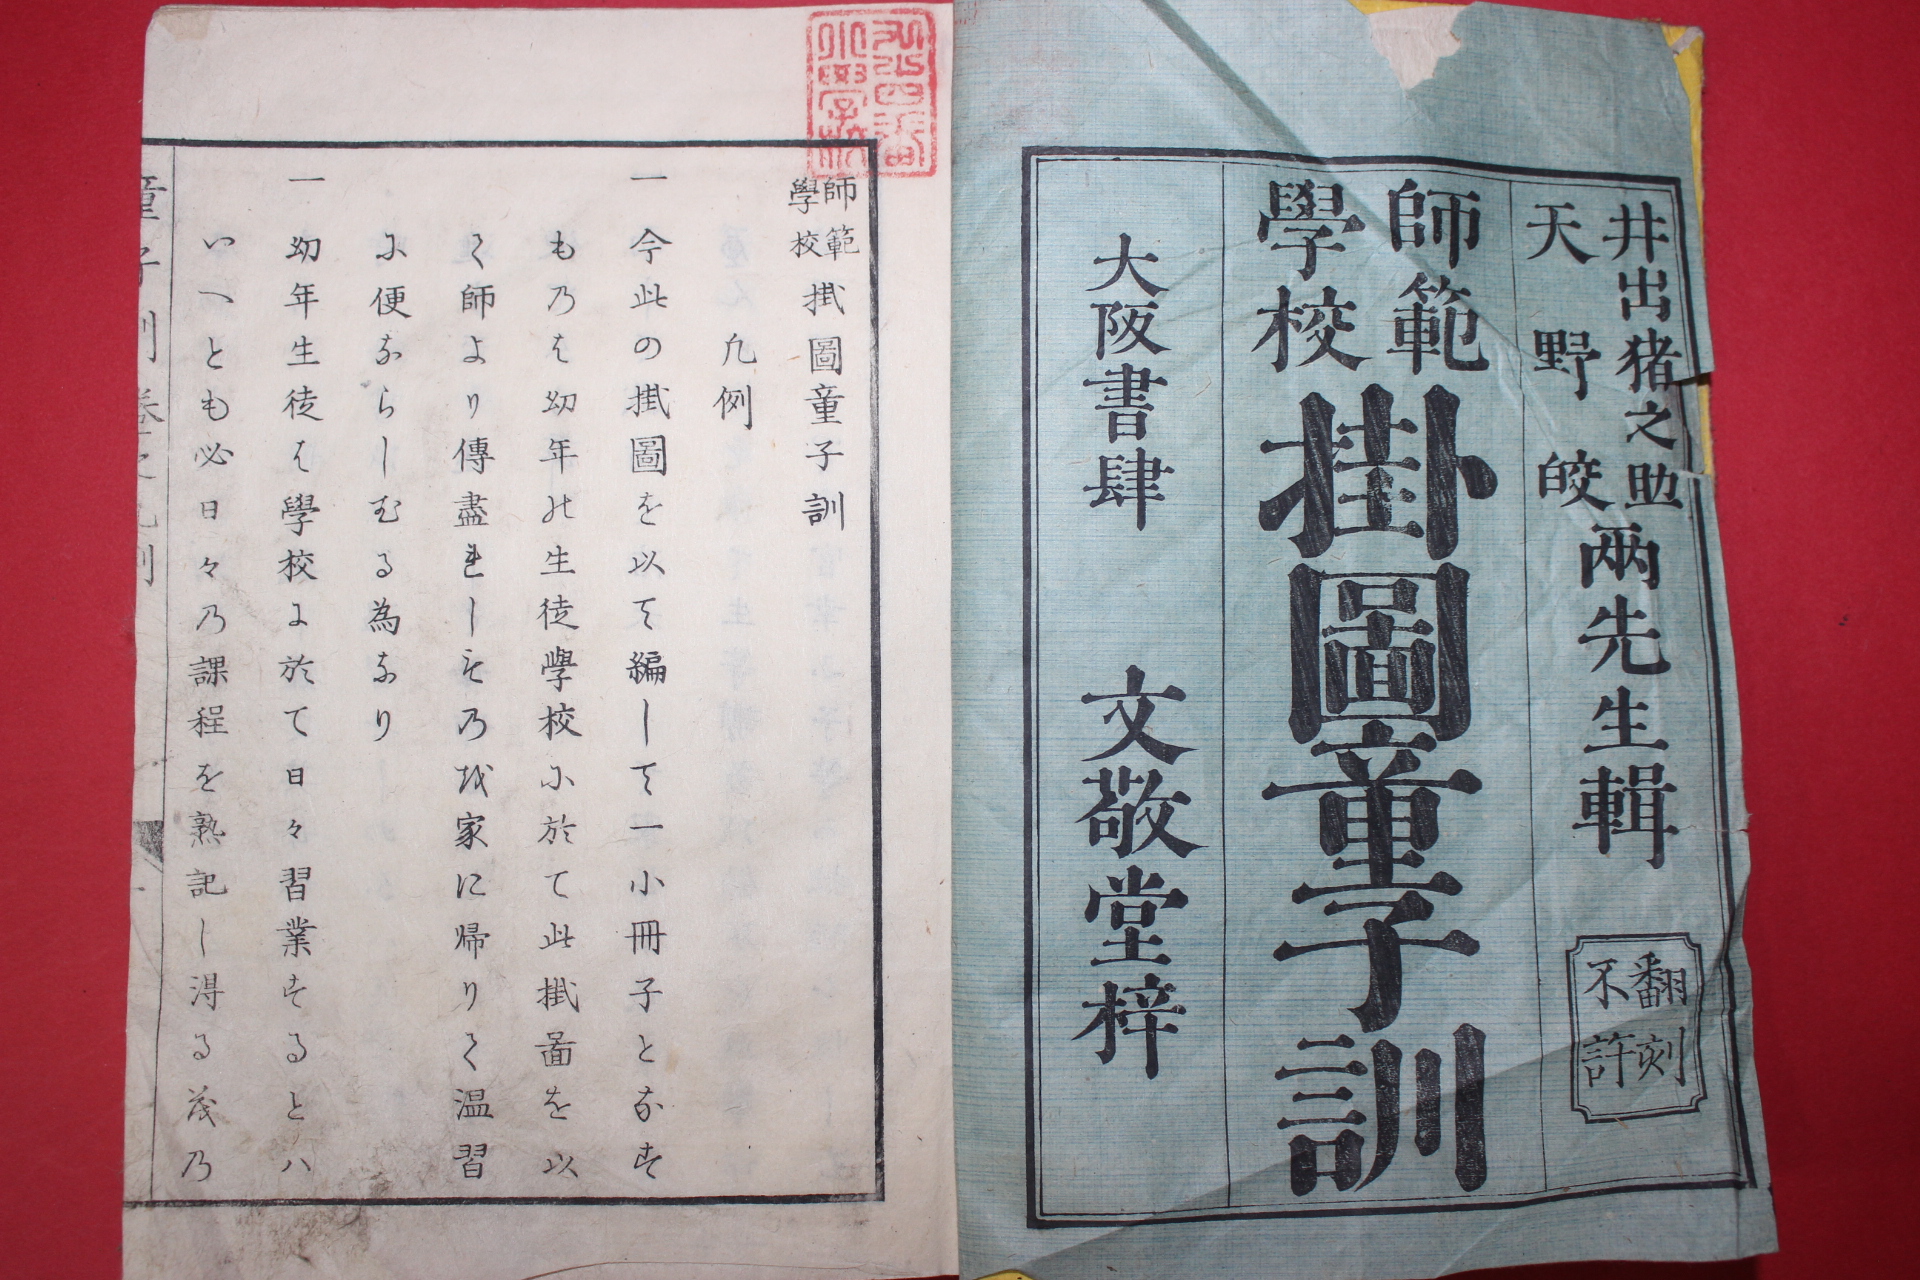 井出猪之助
天野皎
兩先生輯
翻刻
不許
師範
學校
掛圖童子訓
大阪書肆 文敬堂梓
師範
學校
掛圖童子訓
凡例
一 今此の掛圖を以て編して一小冊子となす
ものは幼年の生徒學校に於て此掛啚を以
て師より傳盡れしもの或家に帰りて温習
に便ならしむる為なり
一 幼年生徒は學校に於て日々習業するとハ
いへとも必日々の課程を熟記し得る茂の